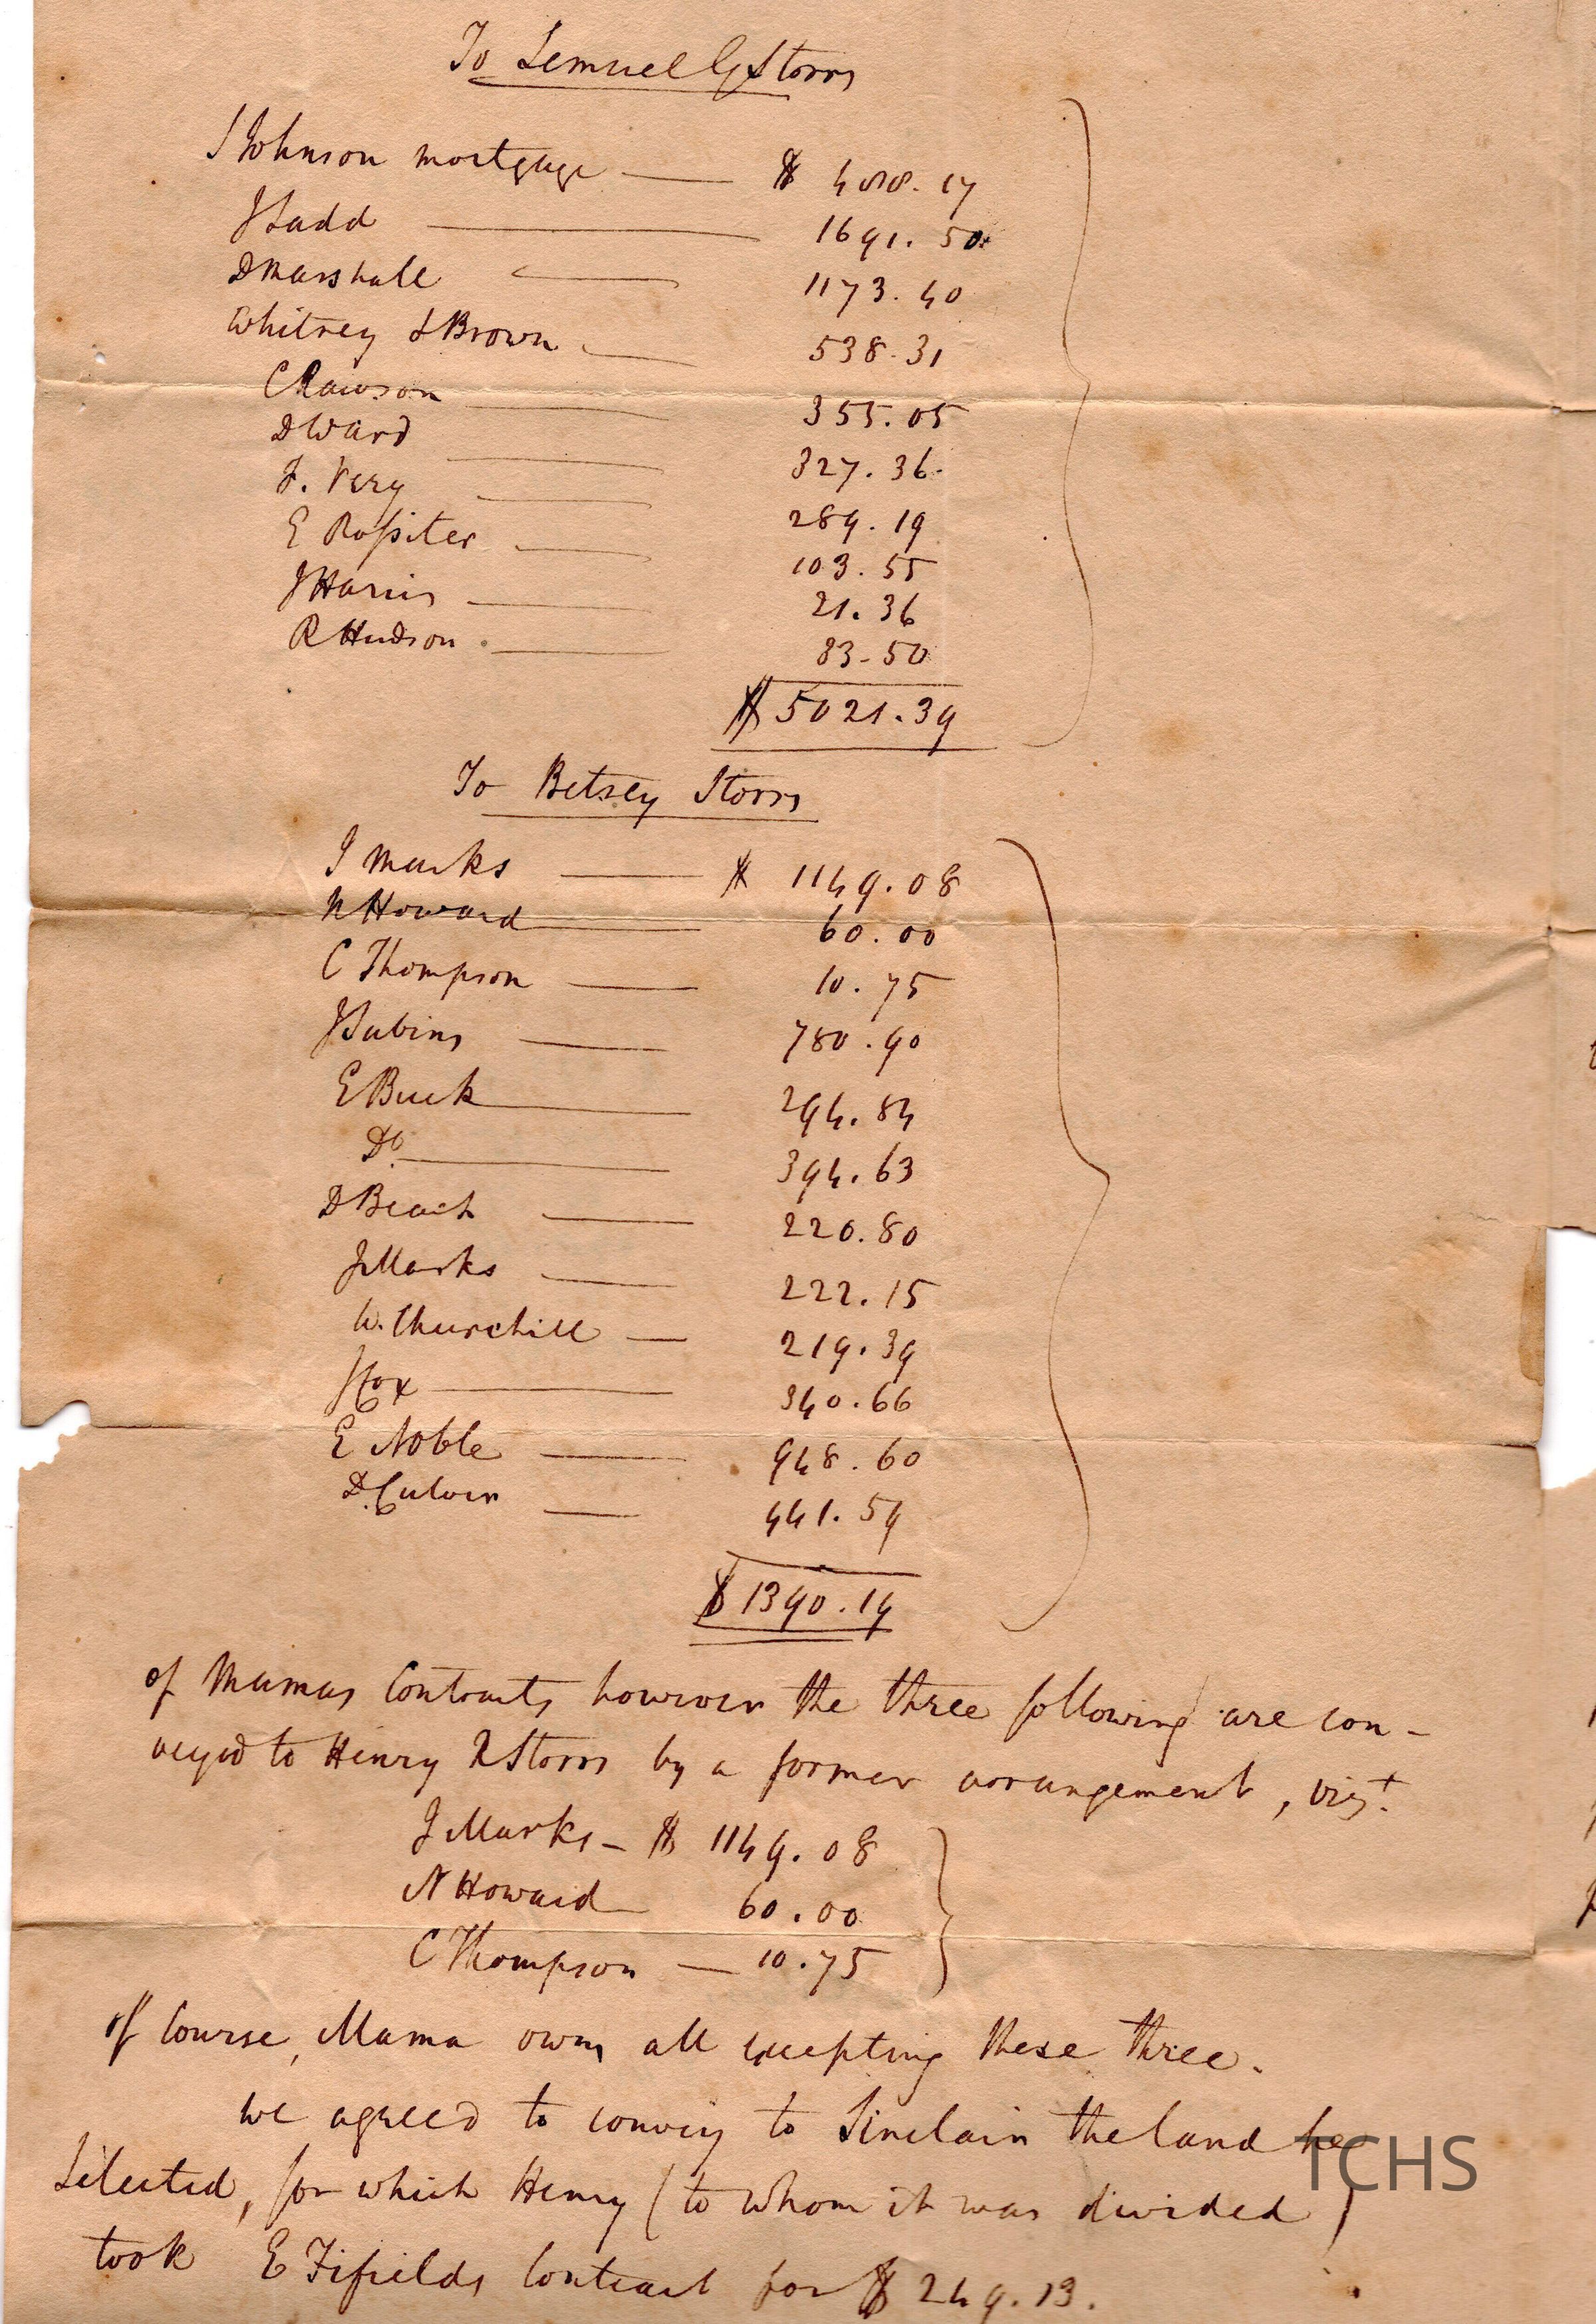 To Lemuel G Storrs
S Johnson mortgage — $ 488.17
J Ladd — 1691.50
D Marshall — 1173.40
Whitney & Brown — 538.31
C Rawson — 355.05
D Ward — 327.36
J. Very — 289.19
E Rossiter — 103.55
J Harris — 21.36
R Hudson — 83.50
$ 5021.39
To Betsey Storrs
J Marks — $ 1149.08
N Howard — 60.00
C Thompson — 10.75
J Sabins — 780.90
E Buck — 294.84
Do. — 394.63
D Beach — 220.80
J Marks — 222.15
W. Churchill — 219.39
J Cox — 340.66
E Noble — 948.60
D. Culver — 441.59
$ 1390.19
of Mamas Contracts however the three following are con-
veyed to Henry R Storrs by a former arrangement, vizt.
J Marks — $ 1149.08
N Howard 60.00
C Thompson — 10.75
of Course, Mama owns all excepting these three.
We agreed to convey to Sinclair the land he
Selected, for which Henry (to whom it was divided)
took E Fifields Contract for $ 249.13.
TCHS